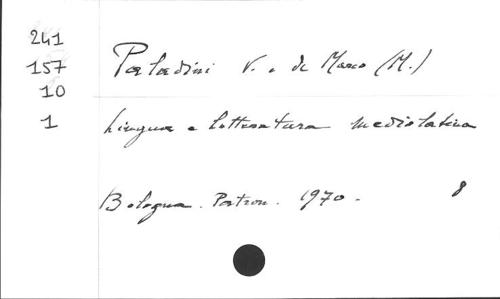 241
157
10
1
Paladini V. e de Marco (M.)
Lingua e letteratura mediolatina
Bologna. Patron. 1970. 8